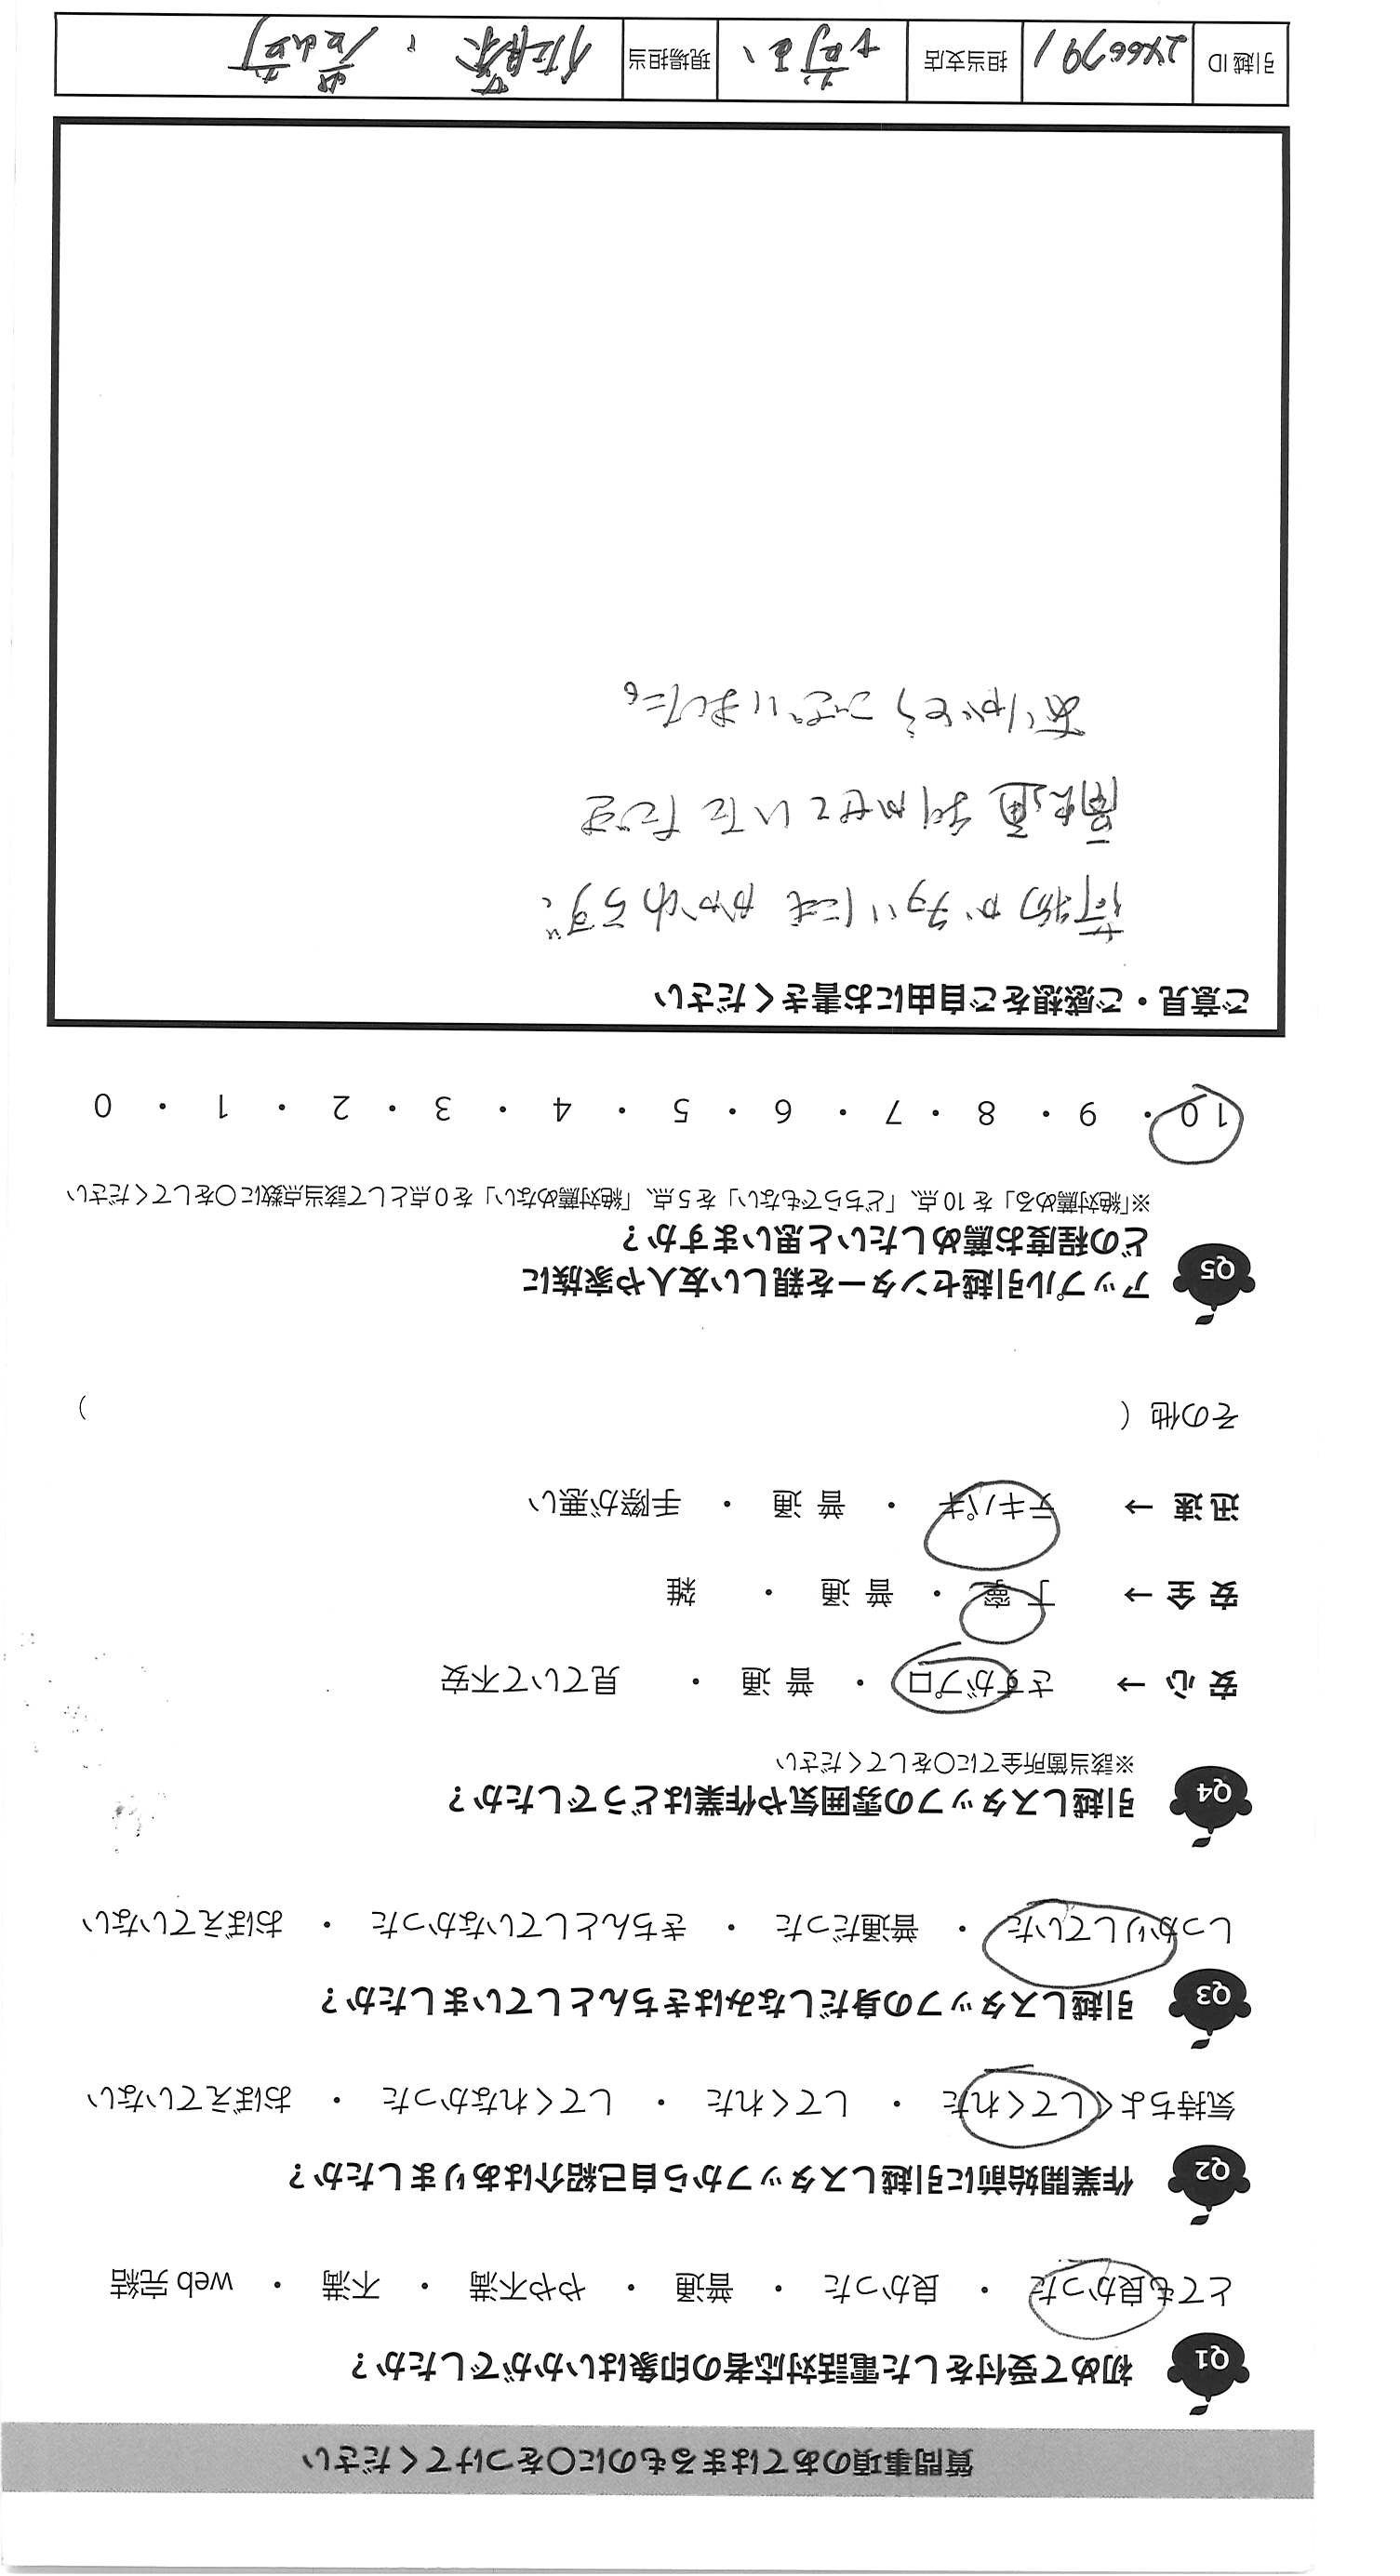 質問事項のあてはまるものに〇をつけてください
Q1 初めて受付をした電話対応者の印象はいかがでしたか？
とても良かった ・ 良かった ・ 普通 ・ やや不満 ・ 不満 ・ web 完結
Q2 作業開始前に引越しスタッフから自己紹介はありましたか？
気持ちよくしてくれた ・ してくれた ・ してくれなかった ・ おぼえていない
Q3 引越しスタッフの身だしなみはきちんとしていましたか？
しっかりしていた ・ 普通だった ・ きちんとしていなかった ・ おぼえていない
Q4 引越しスタッフの雰囲気や作業はどうでしたか？
※該当箇所全てに〇をしてください
安 心 → さすがプロ ・ 普 通 ・ 見ていて不安
安 全 → 丁 寧 ・ 普 通 ・ 雑
迅 速 → テキパキ ・ 普 通 ・ 手際が悪い
その他 ( )
Q5 アップル引越センターを親しい友人や家族に
どの程度お薦めしたいと思いますか？
※「絶対薦める」を 10 点、「どちらでもない」を 5 点、「絶対薦めない」を 0 点として該当点数に〇をしてください
10 ・ 9 ・ 8 ・ 7 ・ 6 ・ 5 ・ 4 ・ 3 ・ 2 ・ 1 ・ 0
ご意見・ご感想をご自由にお書きください
荷物が多いにもかかわらず、
いただき
ありがとうございました。
引越 ID 2466791 担当支店 現場担当 佐藤